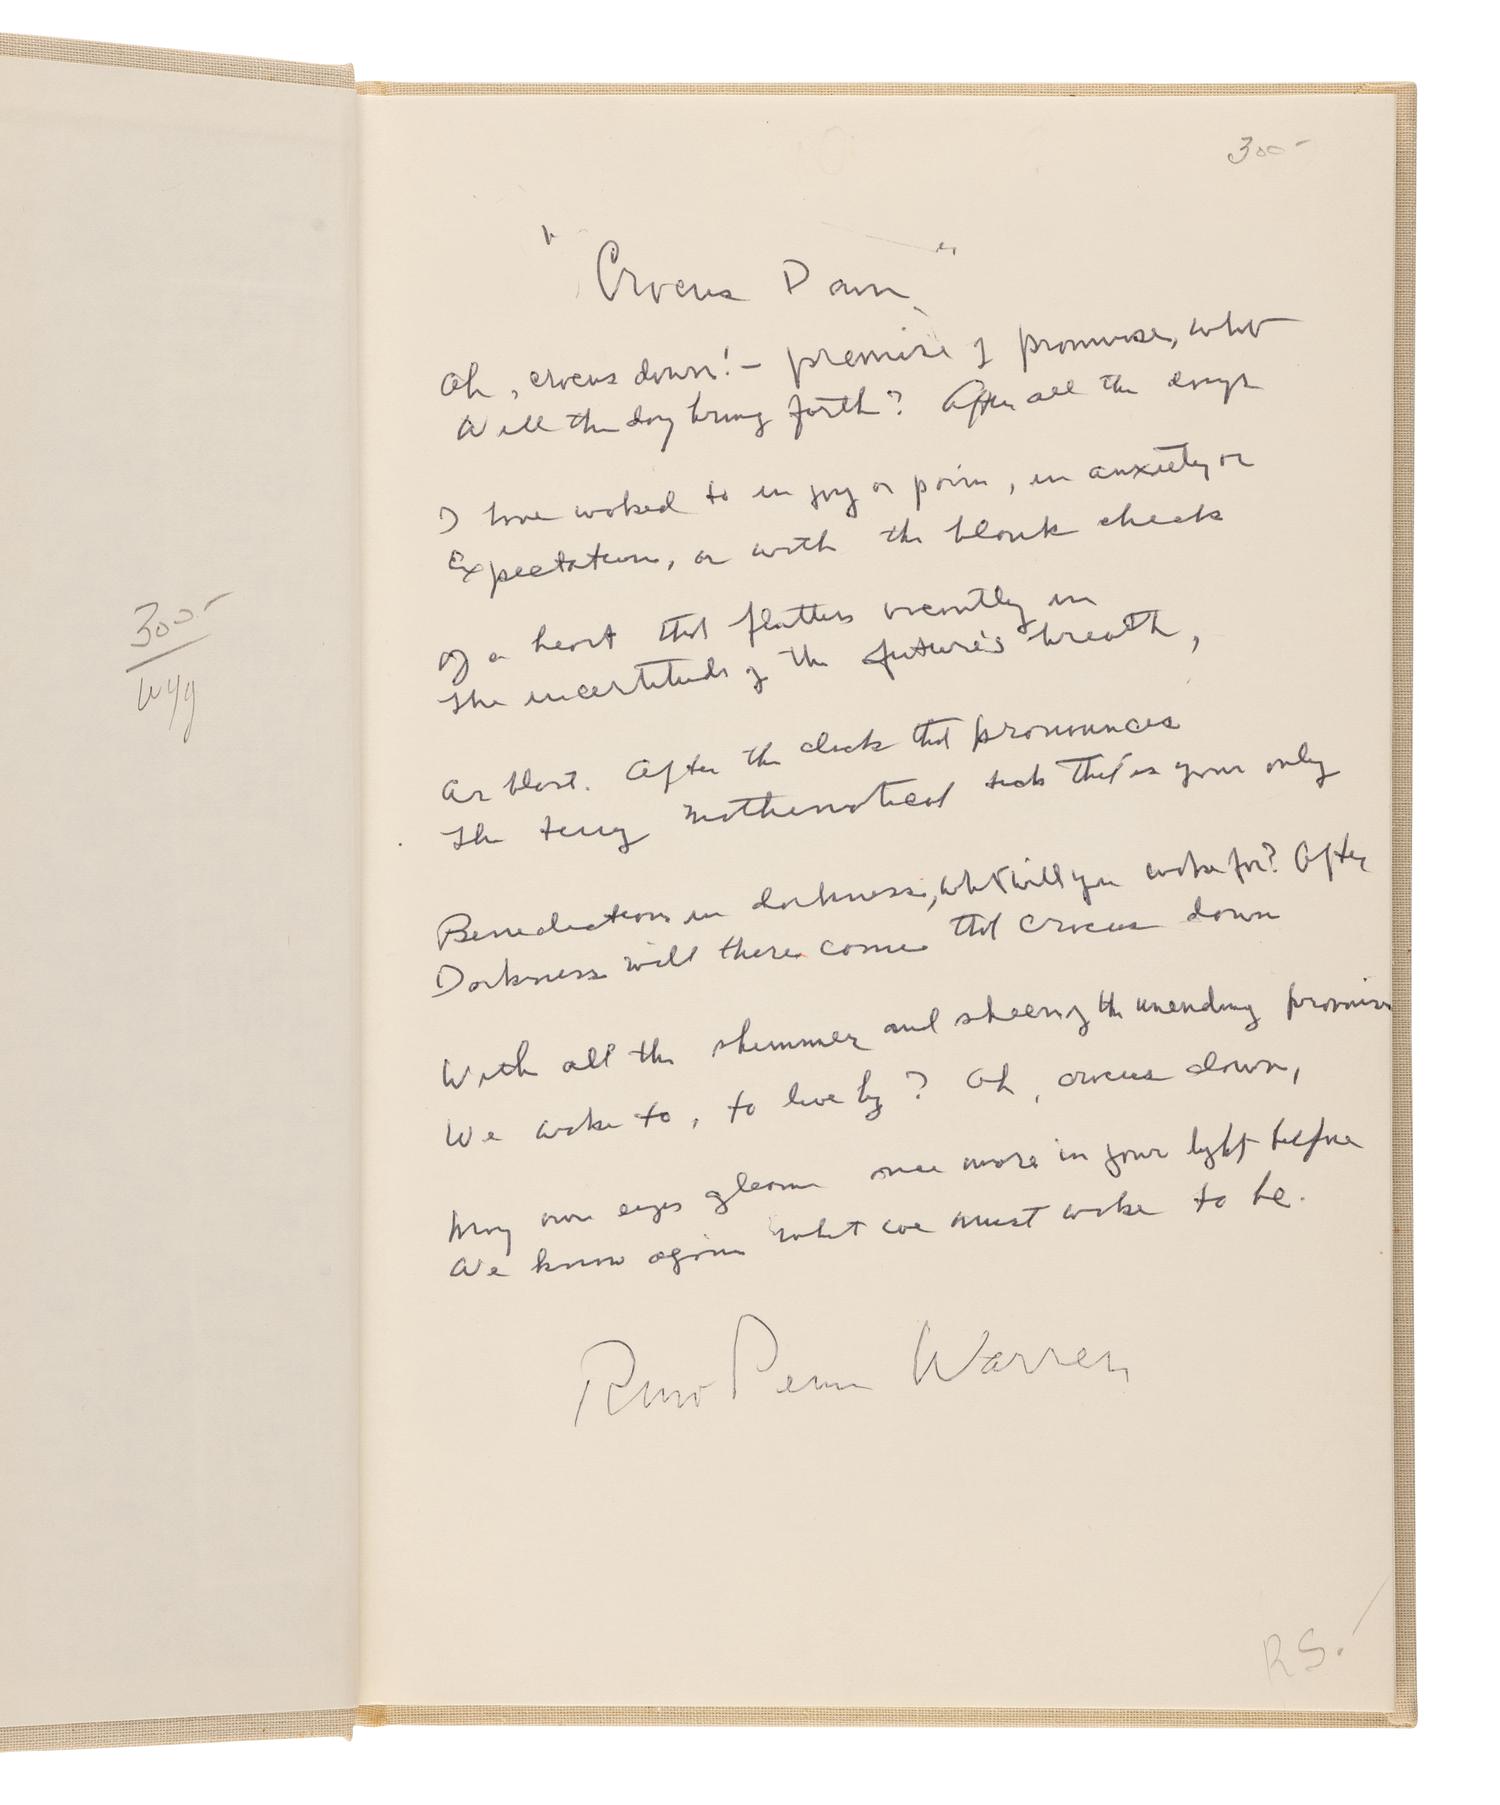 300-
wyg
300-
"Crocus Dawn"
Oh, crocus dawn!— premise of promise, what
Will the day bring forth? After all the days
I have waked to in joy or pain, in anxiety or
Expectation, or with the blank check
Of a heart that flutters vacantly in
The incertitude of the future's breath,
Or blast. After the clock that pronounces
The tiny mathematical tick that is your only
Benediction in darkness, what will you wake for? After
Darkness will there come that crocus dawn
With all the shimmer and sheen of the unending promise
We wake to, to live by? Oh, crocus dawn,
May our eyes gleam once more in your light before
We know again what we must wake to be.
Robert Penn Warren
RS.